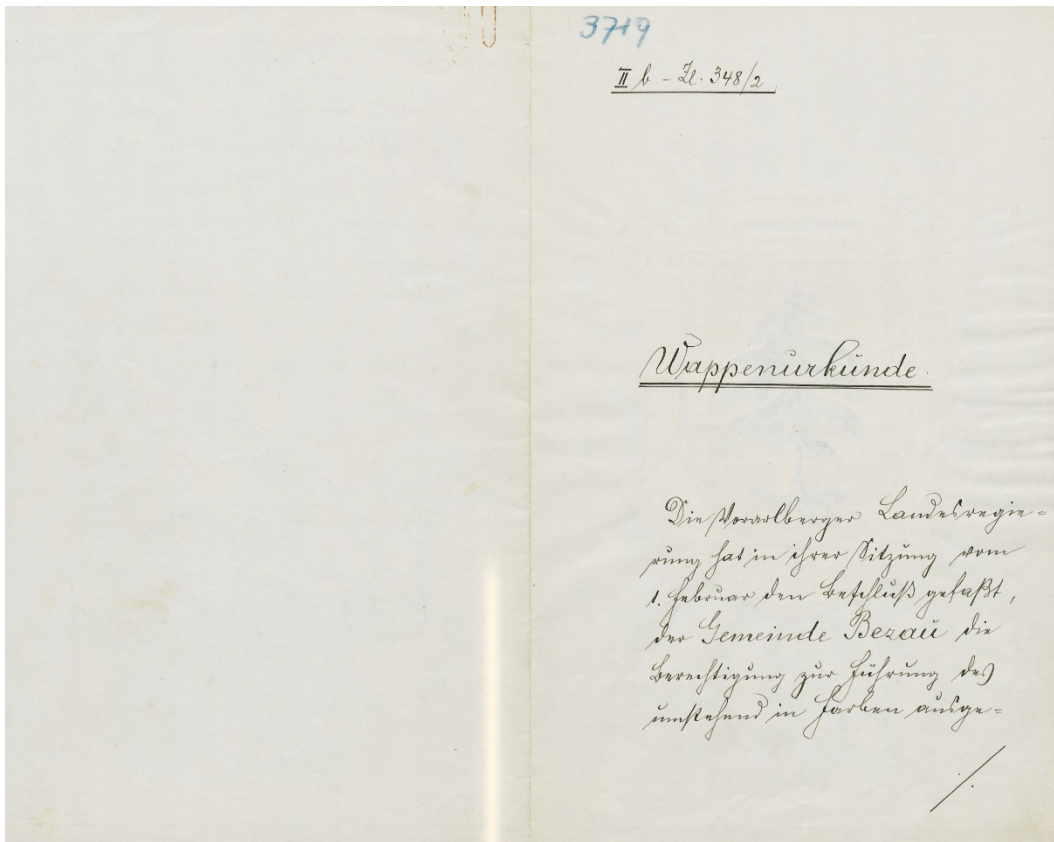 3719
II b - Zl. 348/2
Wappenurkunde.
Die Vorarlberger Landesregie=
rung hat in ihrer Sitzung vom
1. Februar den Beschluß gefaßt,
der Gemeinde Bezau die
Berechtigung zur Führung des
umstehend in Farben ausge=
./.